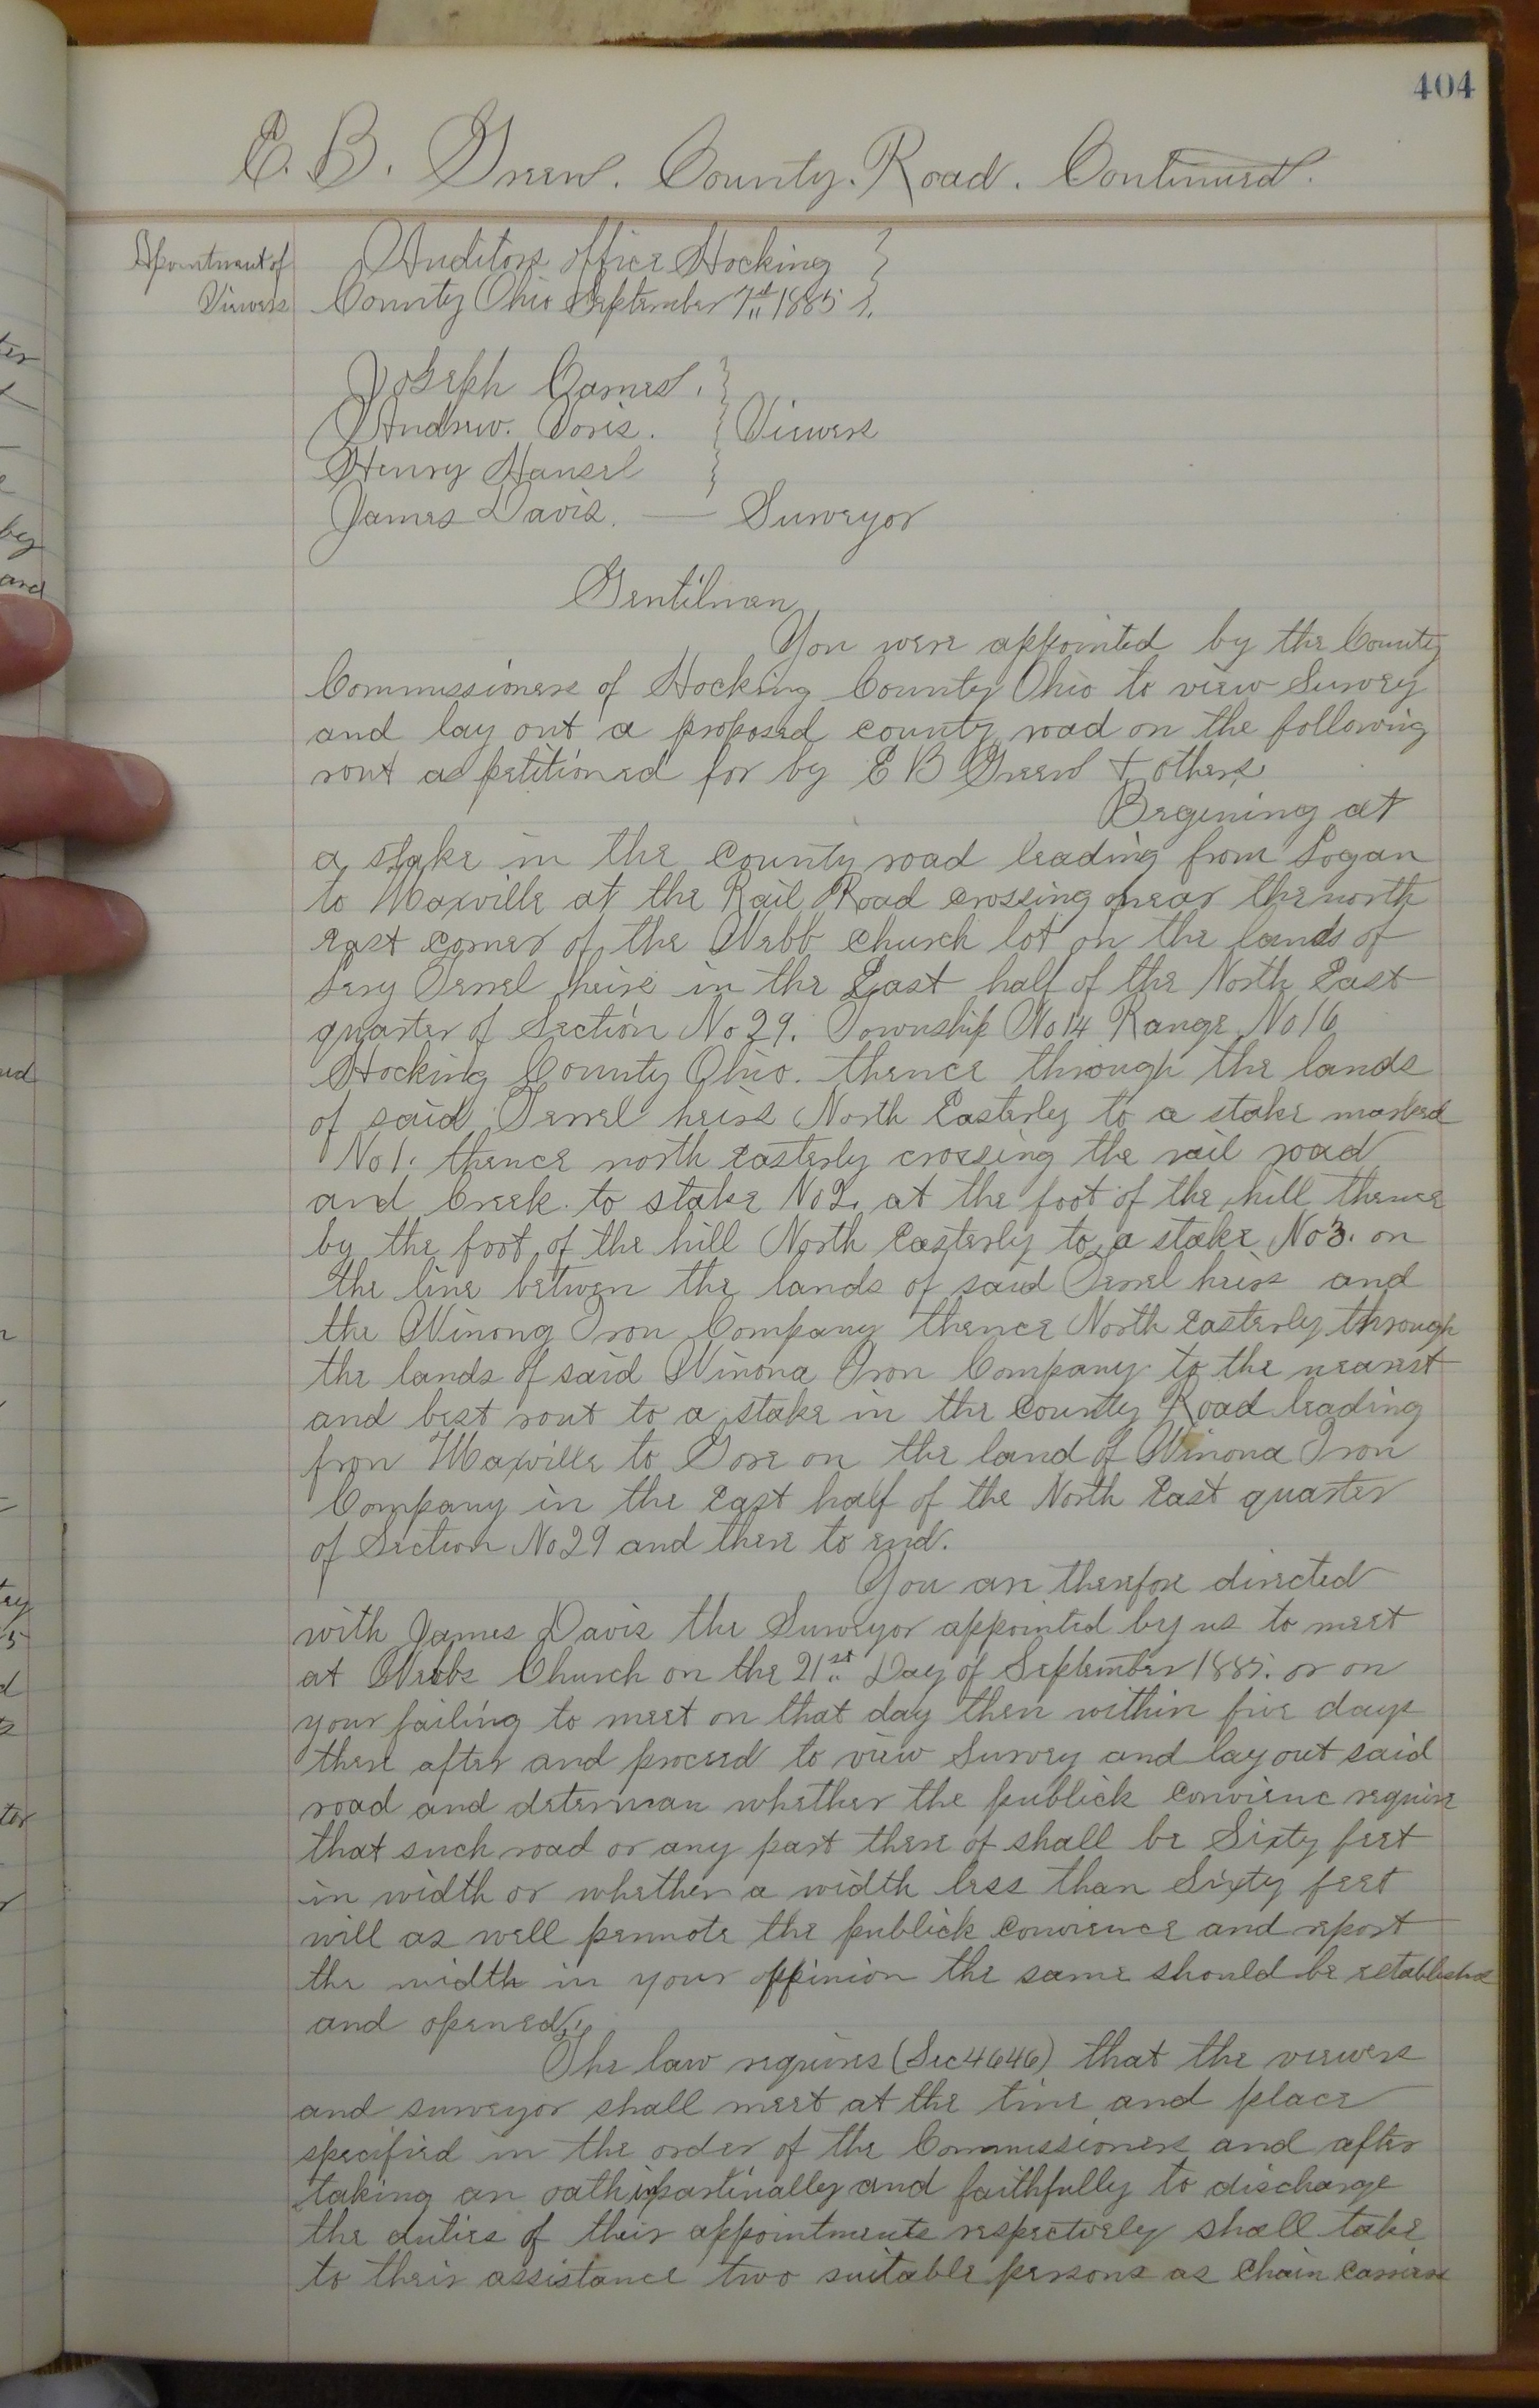 404
E. B. Green. County. Road. Continued.
Apointment of
Viewers
Auditors office Hocking }
County Ohio September 7th 1885 }.
Joseph Carnes. }
Andrew. Voris. } Viewers
Henry Hansel }
James Davis. — Surveyor
Gentilmen
You were appointed by the County
Commissioners of Hocking County Ohio to view Survey
and lay out a proposed county road on the following
rout as petitioned for by E B Green & others
Begining at
a stake in the County road leading from Logan
to Maxville at the Rail Road crossing near the north
east corner of the Webb church lot on the lands of
Levy Terrel heirs in the East half of the North East
quarter of Section No 29. Township No 14 Range No 16
Hocking County Ohio. thence through the lands
of said Terrel heirs North Easterly to a stake marked
No 1. thence north easterly crossing the rail road
and Creek to stake No 2. at the foot of the hill thence
by the foot of the hill North Easterly to a stake No 3. on
the line betwen the lands of said Terrel heirs and
the Winona Iron Company thence North Easterly through
the lands of said Winona Iron Company to the nearest
and best rout to a stake in the County Road leading
from Maxville to Gore on the land of Winona Iron
Company in the East half of the North East quarter
of Section No 29 and there to end.
You are therefore directed
with James Davis the Surveyor appointed by us to meet
at Webbs Church on the 21st Day of September 1885. or on
your failing to meet on that day then within five days
there after and proceed to view Survey and lay out said
road and determan whether the publick convienc require
that such road or any part there of shall be Sixty feet
in width or whether a width less than Sixty feet
will as well penmote the publick convience and report
the width in your oppinion the same should be established
and opened.
The law requires (Sec 4646) that the viewers
and surveyor shall meet at the time and place
specified in the order of the Commissioners and after
taking an oath impartinally and faithfully to discharge
the duties of their appointments respectively shall take
to their assistance two suitable persons as Chain Carriers